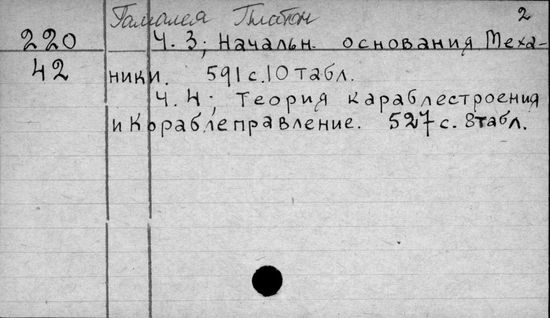 Гамалея Платон 2
220 Ч. 3; Начальн. основания Меха-
42 ники. 591 с. 10 табл.
Ч. 4; Теория караблестроения
и Кораблеправление. 527 с. 8 табл.